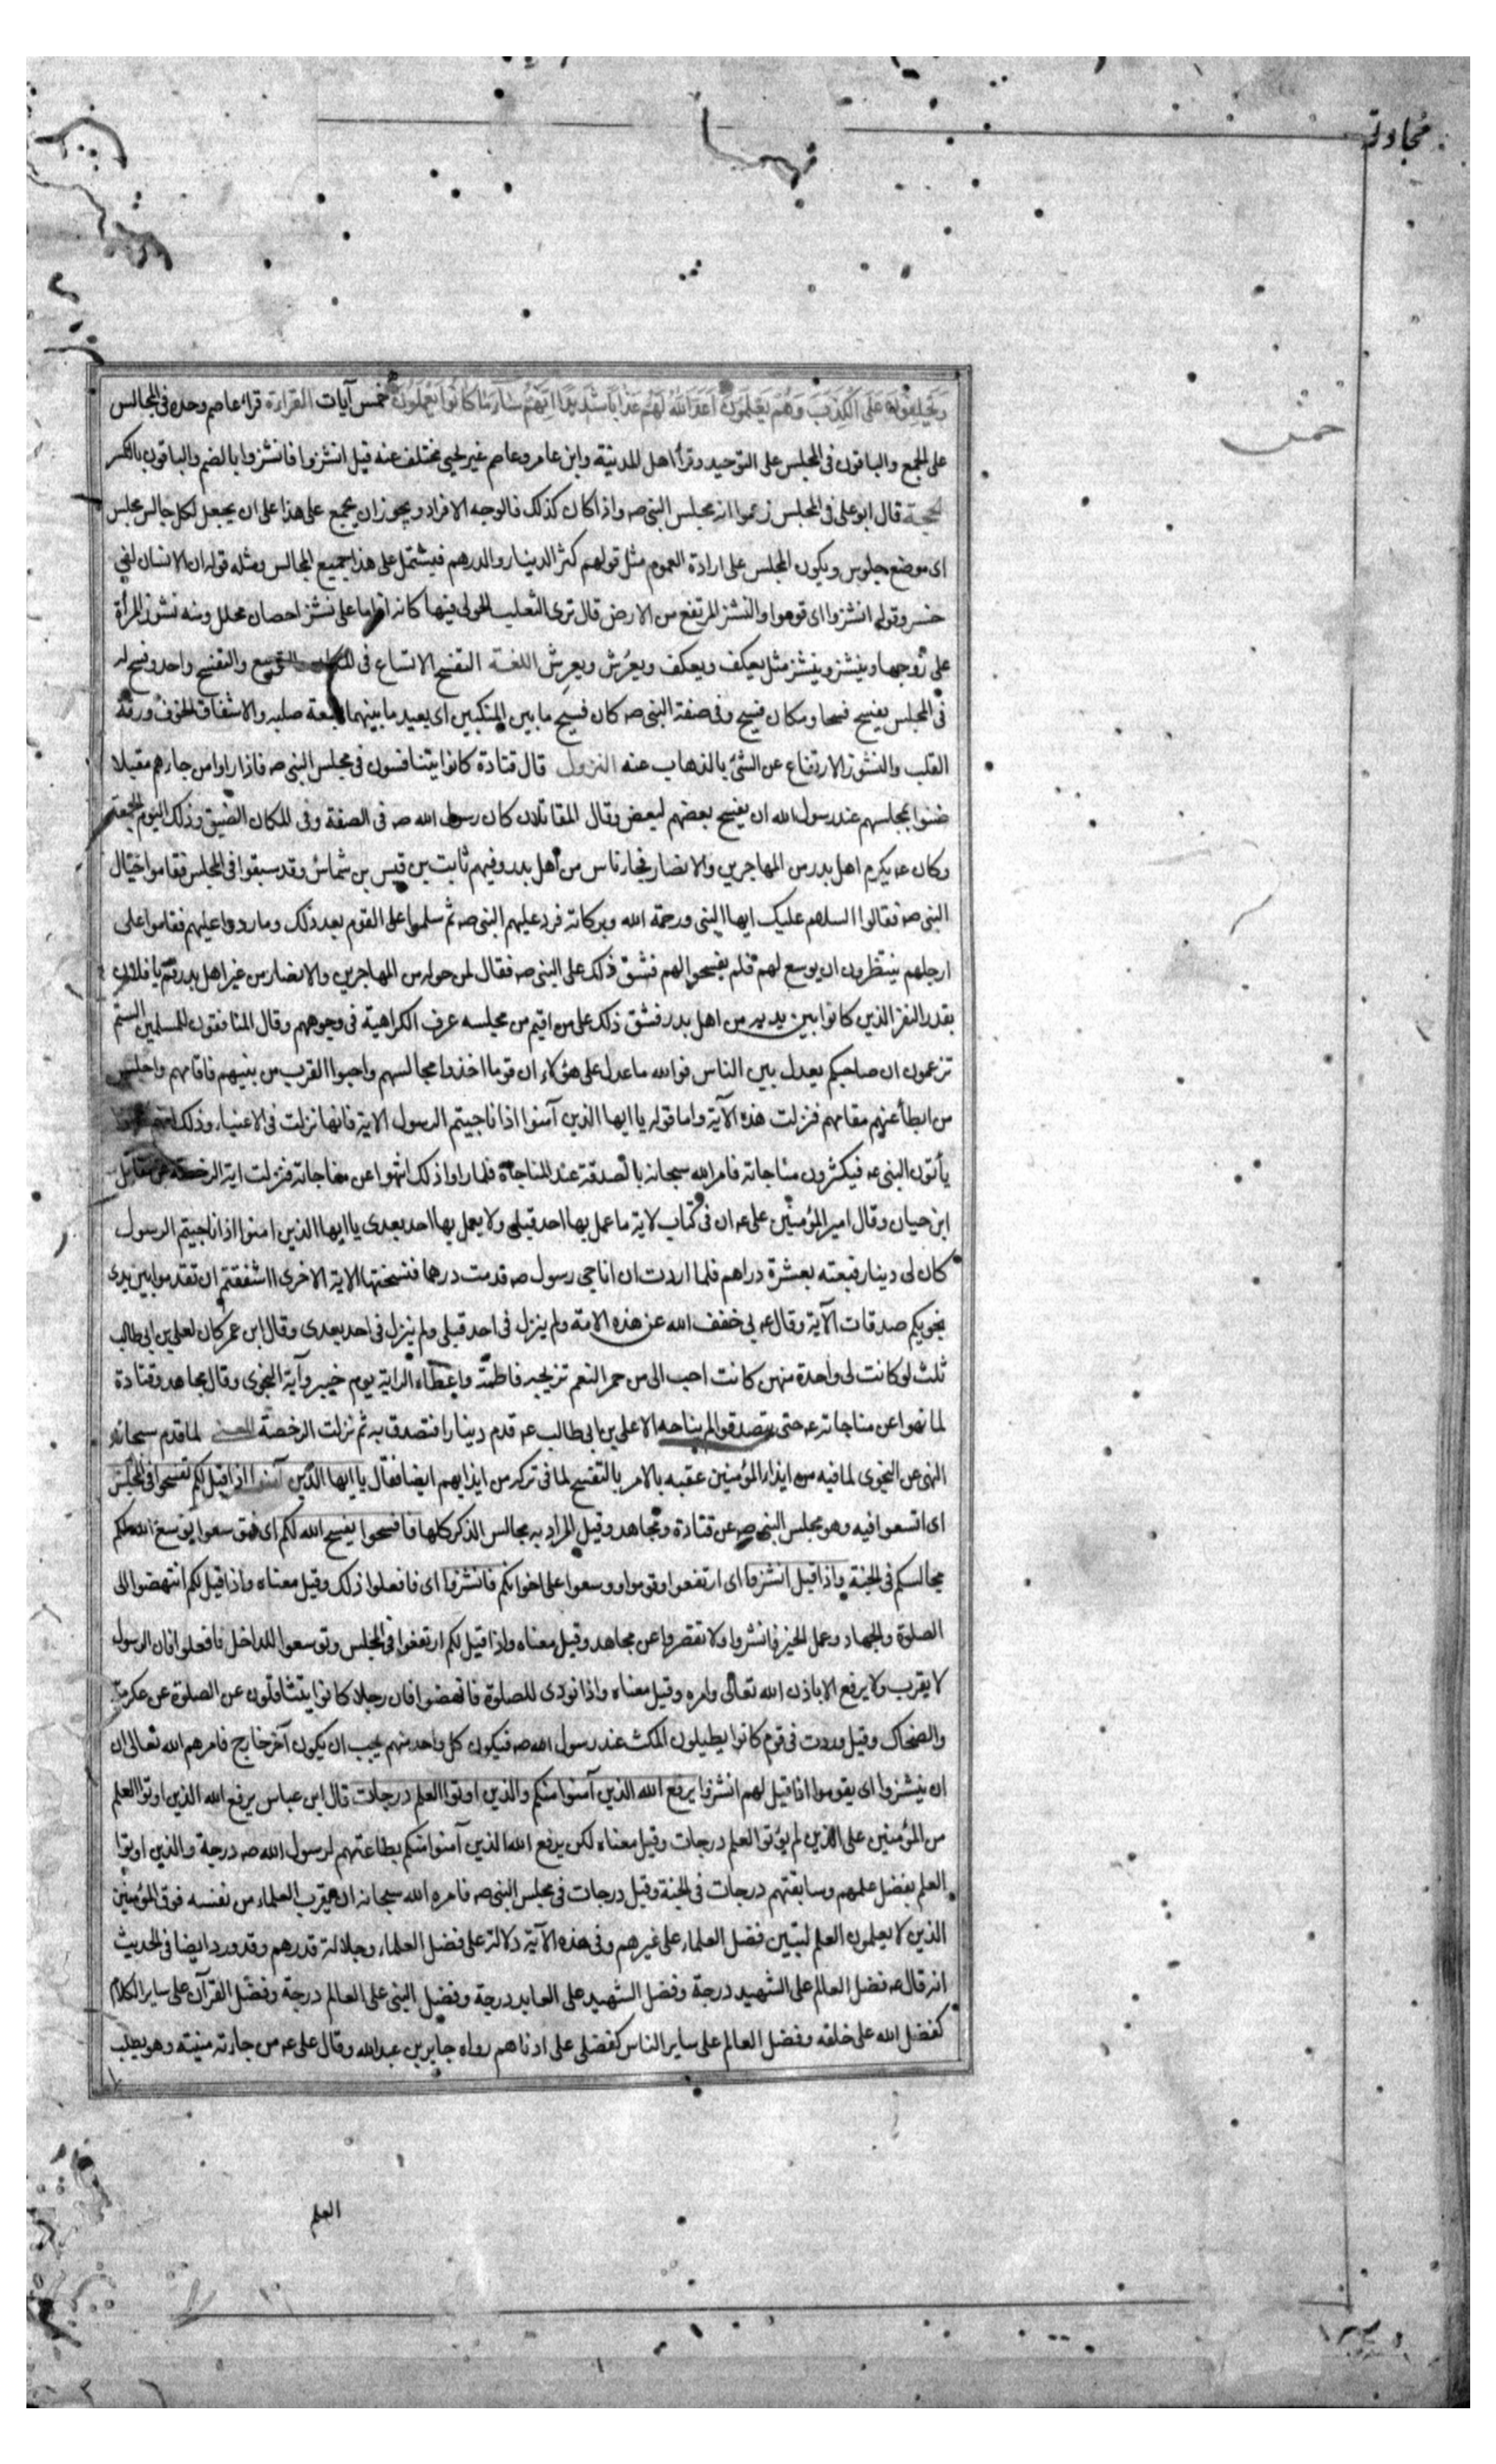 مجادلة
خمس
ويحلفون على الكذب وهم يعلمون اعد الله لهم عذابا شديدا انهم ساء ما كانوا يعملون خمس آيات القراءة قراء عاصم وحده فى المجالس
على الجمع والباقون فى المجلس على التوحيد وقرأ اهل المدينة وابن عامر وعاصم غير يحيى مختلف عنه قيل انشزوا فانشزوا بالضم والباقون بالكسر
الحجة قال ابو على فى المجلس زعموا انه مجلس النبى صه واذا كان كذلك فالوجه الافراد ويجوز ان يجمع على هذا على ان يجعل لكل جالس مجلس
اى موضع جلوس ويكون المجلس على ارادة العموم مثل قولهم كثر الدينار والدرهم فيشتمل على هذا جميع المجالس ومثله قوله ان الانسان لفى
خسر وقوله انشزوا اى قوموا والنشز المرتفع من الارض قال ترى الثعلب الحولى فيها كانه اذا ما على نشز احصان مجلل ومنه نشوز المرأة
على زوجها وينشز وينشز مثل يعكف ويعكف ويعرُش ويعرِش اللغة التفسح الاتساع فى المكان والتوسع والتفسح واحد وفسح له
فى المجلس يفسح فسحا ومكان فسيح وفى صفة النبى صه كان فسيح ما بين المنكبين اى بعيد ما بينهما لسعة صلبه والاشفاق الخوف ورقة
القلب والنشوز الارتفاع عن الشئ بالذهاب عنه النزول قال قتادة كانوا يتنافسون فى مجلس النبى صه فاذا راوا من جاءهم مقبلا
ضنوا بمجلسهم عند رسول الله ان يفسح بعضهم لبعض وقال المقاتلان كان رسول الله صه فى الصفة وفى المكان الضيق وذلك اليوم الجمعة
وكان عه يكرم اهل بدر من المهاجرين والانصار فجاء ناس من أهل بدر وفيهم ثابت بن قيس بن شماس وقد سبقوا فى المجلس فقاموا خيال
النبى صه فقالوا السلام عليك ايها النبى ورحمة الله وبركاته فرد عليهم النبى صه ثم سلموا على القوم بعد ذلك وما ردوا عليهم فقاموا على
ارجلهم ينتظرون ان يوسع لهم فلم يفسحوا لهم فشق ذلك على النبى صه فقال لمن حوله من المهاجرين والانصار من غير اهل بدر قم يا فلان
بقدر النفر الذين كانوا بين يديه من اهل بدر فشق ذلك على من اقيم من مجلسه عرف الكراهية فى وجوههم وقال المنافقون للمسلمين الستم
تزعمون ان صاحبكم يعدل بين الناس فوالله ما عدل على هؤلاء ان قوما اخذوا مجالسهم واحبوا القرب من نبيهم فاقامهم واجلس
من ابطأ عنهم مقامهم فنزلت هذه الآية واما قوله يا ايها الذين آمنوا اذا ناجيتم الرسول الاية فانها نزلت فى الاغنياء وذلك انهم كانوا
يأتون النبى عه فيكثرون مناجاته فامر الله سبحانه بالصدقة عند المناجاة فلما راوا ذلك انتهوا عن مناجاته فنزلت اية الرخصة عن مقاتل
ابن حيان وقال امير المؤمنين على عه ان فى كتاب لاية ما عمل بها احد قبلى ولا يعمل بها احد بعدى يا ايها الذين امنوا اذا ناجيتم الرسول
كان لى دينار فبعته بعشرة دراهم فلما اردت ان اناجى رسول صه قدمت درهما فنسختها الاية الاخرى ااشفقتم ان تقدموا بين يدى
نجويكم صدقات الآية وقال عه بى خفف الله عن هذه الامة ولم ينزل فى احد قبلى ولم ينزل فى احد بعدى وقال ابن عمر كان لعلى بن ابى طالب
ثلث لو كانت لى واحدة منهن كانت احب الى من حمر النعم تزويجه فاطمة واعطاء الراية يوم خيبر وآية النجوى وقال مجاهد وقتادة
لما نهوا عن مناجاته عه حتى يتصدقوا لم يناجه الا على بن ابى طالب عه قدم دينارا فتصدق به ثم نزلت الرخصة المعنى لما قدم سبحانه
النهى عن النجوى لما فيه من ايذاء المؤمنين عقبه بالامر بالتفسح لما فى تركه من ايذايهم ايضا فقال يا ايها الذين آمنوا اذا قيل لكم تفسحوا فى المجلس
اى اتسعوا فيه وهو مجلس النبى صه عن قتادة ومجاهد وقيل المراد به مجالس الذكر كلها فافسحوا يفسح الله لكم اى فتوسعوا يوسع الله لكم
مجالسكم فى الجنة واذا قيل انشزوا اى ارتفعوا وقوموا ووسعوا على اخوانكم فانشزوا اى فافعلوا ذلك وقيل معناه واذا قيل لكم انتهضوا الى
الصلوة والجهاد وعمل الخير فانشزوا ولا تقصروا عن مجاهد وقيل معناه واذا قيل لكم ارتفعوا فى المجلس وتوسعوا للداخل فافعلوا فان الرسول
لا يقرب ولا يرفع الا باذن الله تعالى وامره وقيل معناه واذا نودى للصلوة فانهضوا فان رجلا كانوا يتثاقلون عن الصلوة عن عكرمة
والضحاك وقيل وردت فى قوم كانوا يطيلون المكث عند رسول الله صه فيكون كل واحد منهم يحب ان يكون آخر خارج فامرهم الله تعالى ان
ان ينشزوا اى يقوموا اذا قيل لهم انشزوا يرفع الله الذين آمنوا منكم والذين اوتوا العلم درجات قال ابن عباس يرفع الله الذين اوتوا العلم
من المؤمنين على الذين لم يؤتوا العلم درجات وقيل معناه لكن يرفع الله الذين آمنوا منكم بطاعتهم لرسول الله صه درجة والذين اوتوا
العلم بفضل علمهم وسابقتهم درجات فى الجنة وقيل درجات فى مجلس النبى صه فامره الله سبحانه ان يقرب العلماء من نفسه فوق المؤمنين
الذين لا يعلمون العلم ليتبين فضل العلماء على غيرهم وفى هذه الآية دلالة على فضل العلماء وجلالة قدرهم وقد ورد ايضا فى الحديث
انه قال عه فضل العالم على الشهيد درجة وفضل الشهيد على العابد درجة وفضل النبى على العالم درجة وفضل القرآن على ساير الكلام
كفضل الله على خلقه وفضل العالم على ساير الناس كفضلى على ادناهم رواه جابر بن عبد الله وقال على عه من جاءته منيته وهو يطلب
العلم